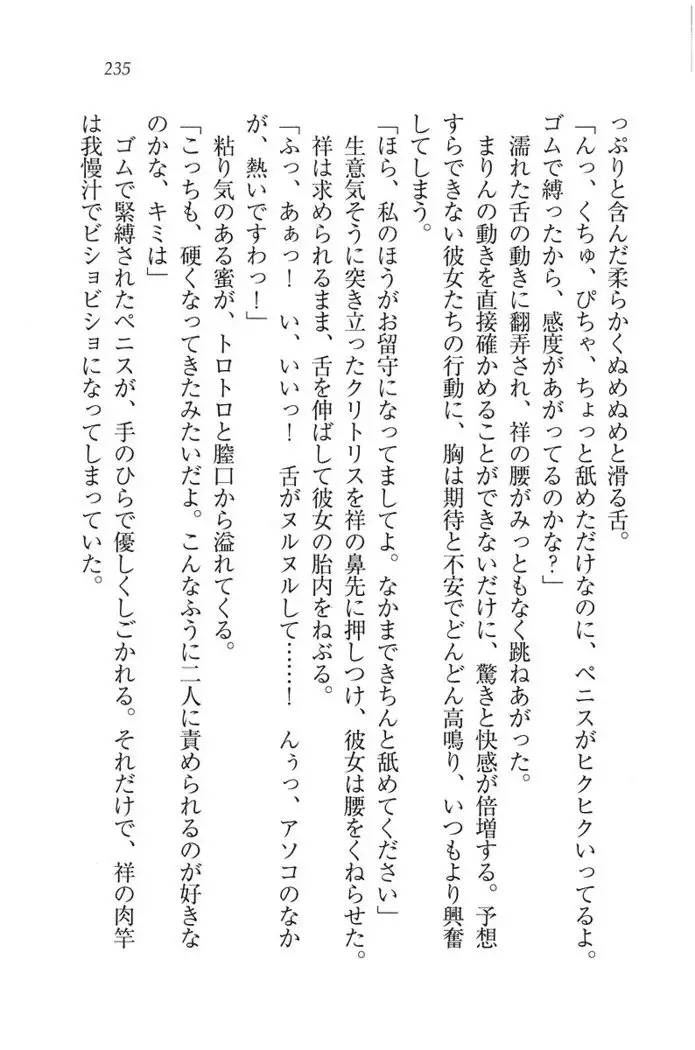 235
っぷりと含んだ柔らかくぬめぬめと滑る舌。
「んっ、くちゅ、ぴちゃ、ちょっと舐めただけなのに、ペニスがヒクヒクいってるよ。
ゴムで縛ったから、感度があがってるのかな?」
濡れた舌の動きに翻弄され、祥の腰がみっともなく跳ねあがった。
まりんの動きを直接確かめることができないだけに、驚きと快感が倍増する。予想
すらできない彼女たちの行動に、胸は期待と不安でどんどん高鳴り、いつもより興奮
してしまう。
「ほら、私のほうがお留守になってましてよ。なかまできちんと舐めてください」
生意気そうに突き立ったクリトリスを祥の鼻先に押しつけ、彼女は腰をくねらせた。
祥は求められるまま、舌を伸ばして彼女の胎内をねぶる。
「ふっ、あぁっ! い、いいっ! 舌がヌルヌルして……! んぅっ、アソコのなか
が、熱いですわっ!」
粘り気のある蜜が、トロトロと膣口から溢れてくる。
「こっちも、硬くなってきたみたいだよ。こんなふうに二人に責められるのが好きな
のかな、キミは」
ゴムで緊縛されたペニスが、手のひらで優しくしごかれる。それだけで、祥の肉竿
は我慢汁でビショビショになってしまっていた。